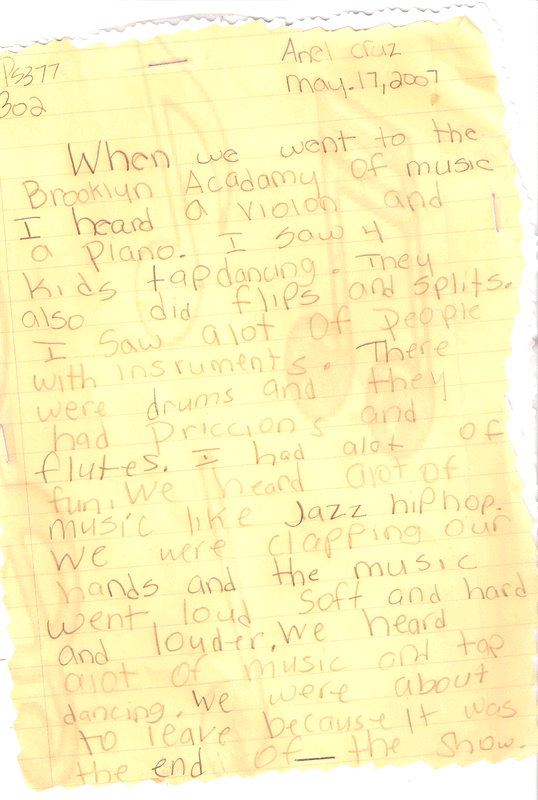 PS377
Anel Cruz
302
May.17,2007
When we went to the
Brooklyn Acadamy of music
I heard a violon and
a piano. I saw 4
kids tapdancing. They
also did flips and splits.
I saw alot of people
with insruments. There
were drums and they
had priccions and
flutes. I had alot of
fun. We heard alot of
music like Jazz hiphop.
We were clapping our
hands and the music
went loud soft and hard
and louder. We heard
alot of music and tap
dancing. We were about
to leave because It was
the end of the show.